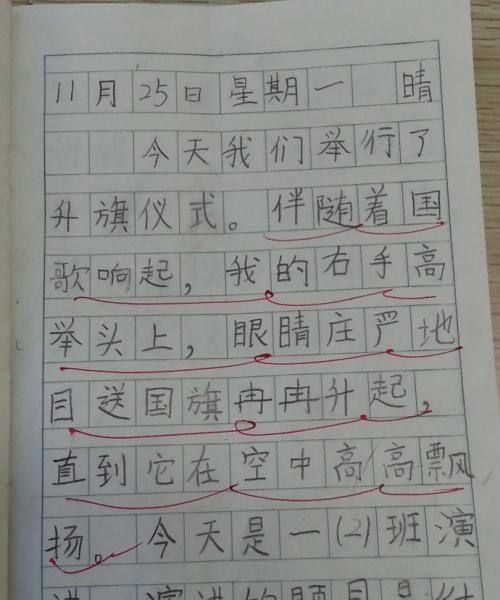 11月25日星期一 晴
今天我们举行了
升旗仪式。伴随着国
歌响起,我的右手高
举头上,眼睛庄严地
目送国旗冉冉升起,
直到它在空中高高飘
扬。今天是一(2)班演
讲 演讲的题目是